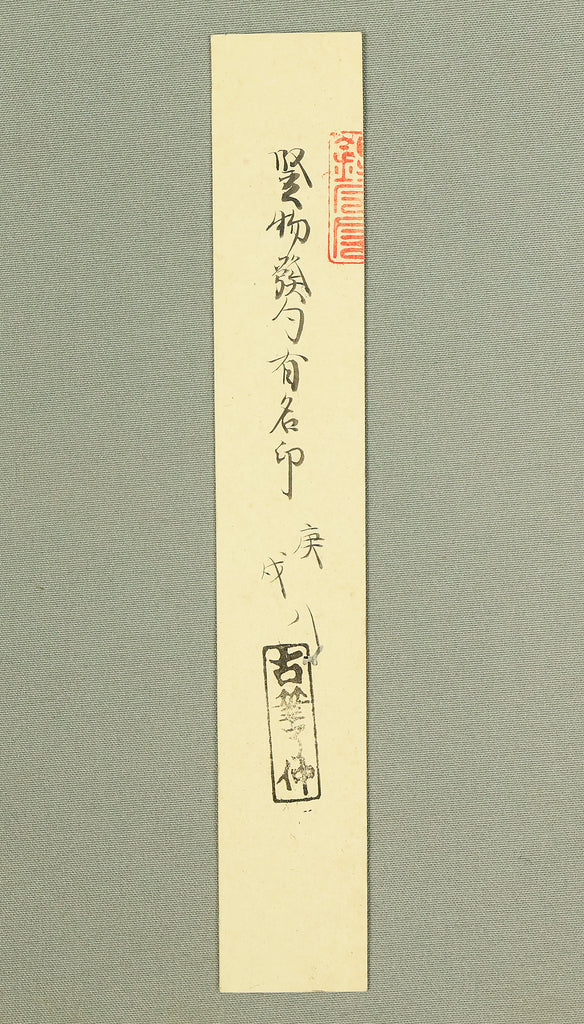 竪物發句有名印
庚戌八
古筆了仲